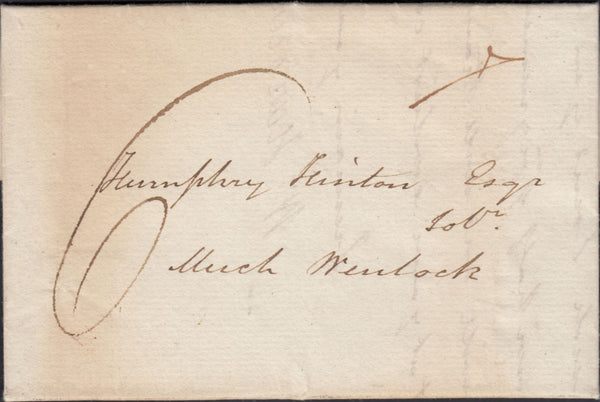 6
Humphry Hinton Esqr
Solr.
Much Wenlock